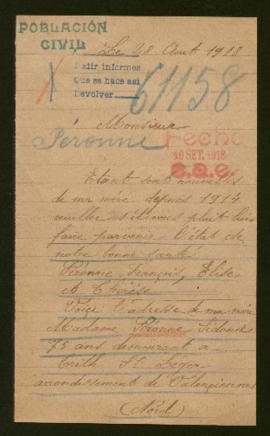 POBLACIÓN
CIVIL
Le 28 Aout 1918
Pedir informes
Que se hace asi
Devolver
61158
Monsieur
Péronne
Fecha
10 SET. 1918
C.a.c.
Etant sans nouvelles
de ma mère depuis 1914
veuillez s'il vous plait lui
faire parvenir l'état de
notre bonne santé
Péronne François, Elise
et Thérèse
Voici l'adresse de ma mère
Madame Péronne
75 ans demeurant a
Trith St Léger
arrondissement de Valenciennes
(Nord)